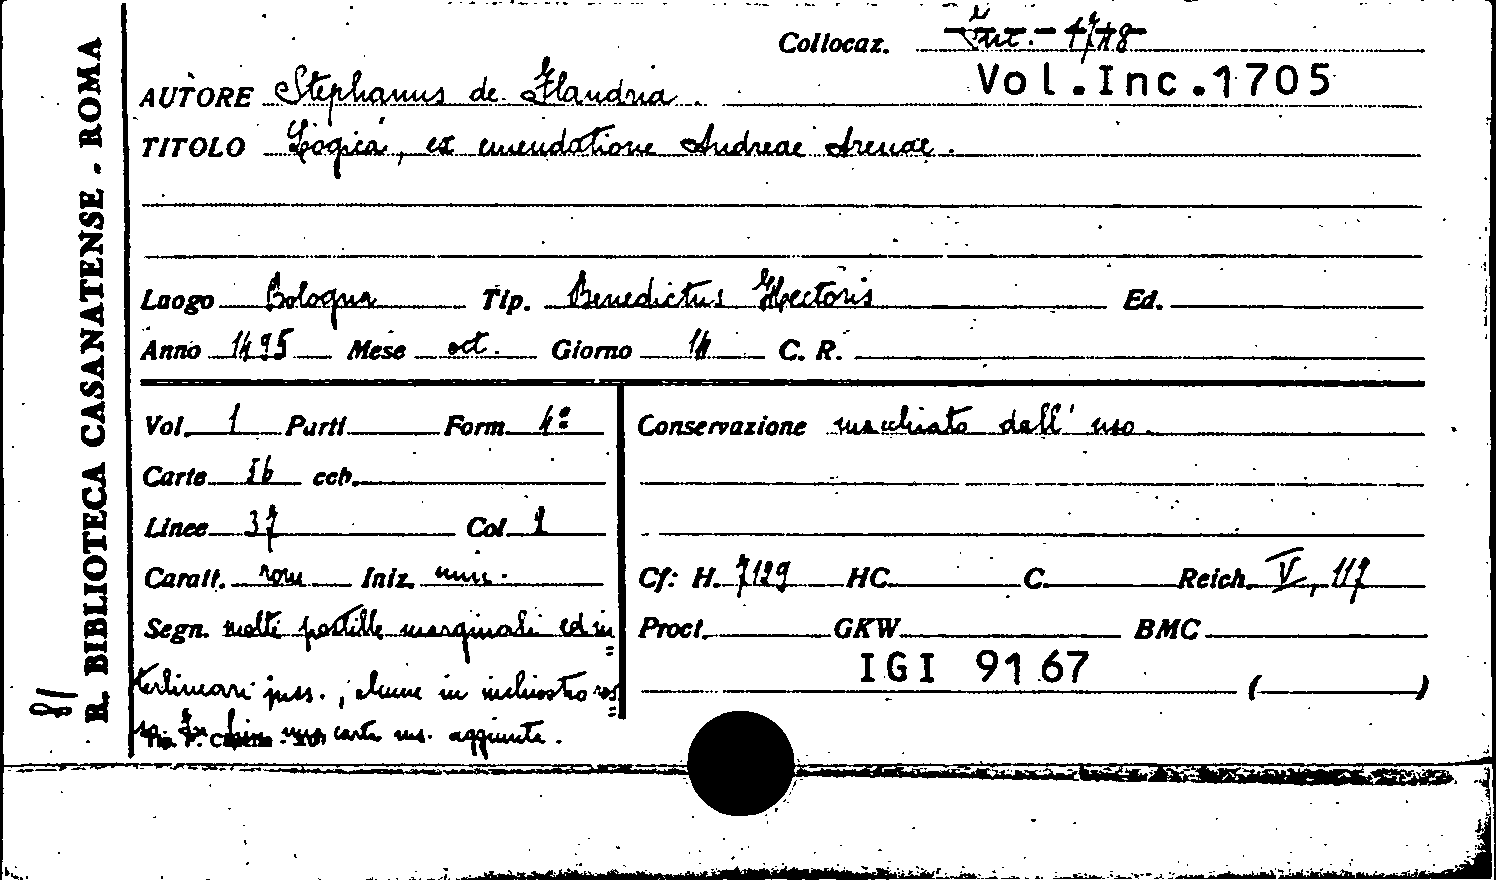 R. BIBLIOTECA CASANATENSE - ROMA
81
Collocaz.
Vol.Inc.1705
AUTORE Stephanus de Flandria.
TITOLO Logica, ex emendatione Andreae Arenae.
Luogo Bologna Tip. Benedictus Hectoris Ed.
Anno 1495 Mese oct. Giorno 14 C. R.
Vol. 1 Parti Form. 4º
Carte 56 cch.
Linee 37 Col. 1
Caratt. rom Iniz. min.
Segn. molti postille marginali ed in=
terlineari mss., alcune in inchiostro ros=
so. In fine una carta ms. aggiunta.
Conservazione macchiato dall'uso.
Cf: H. 7129 HC. C. Reich. V, 117
Proct. GKW. BMC
IGI 9167
( )